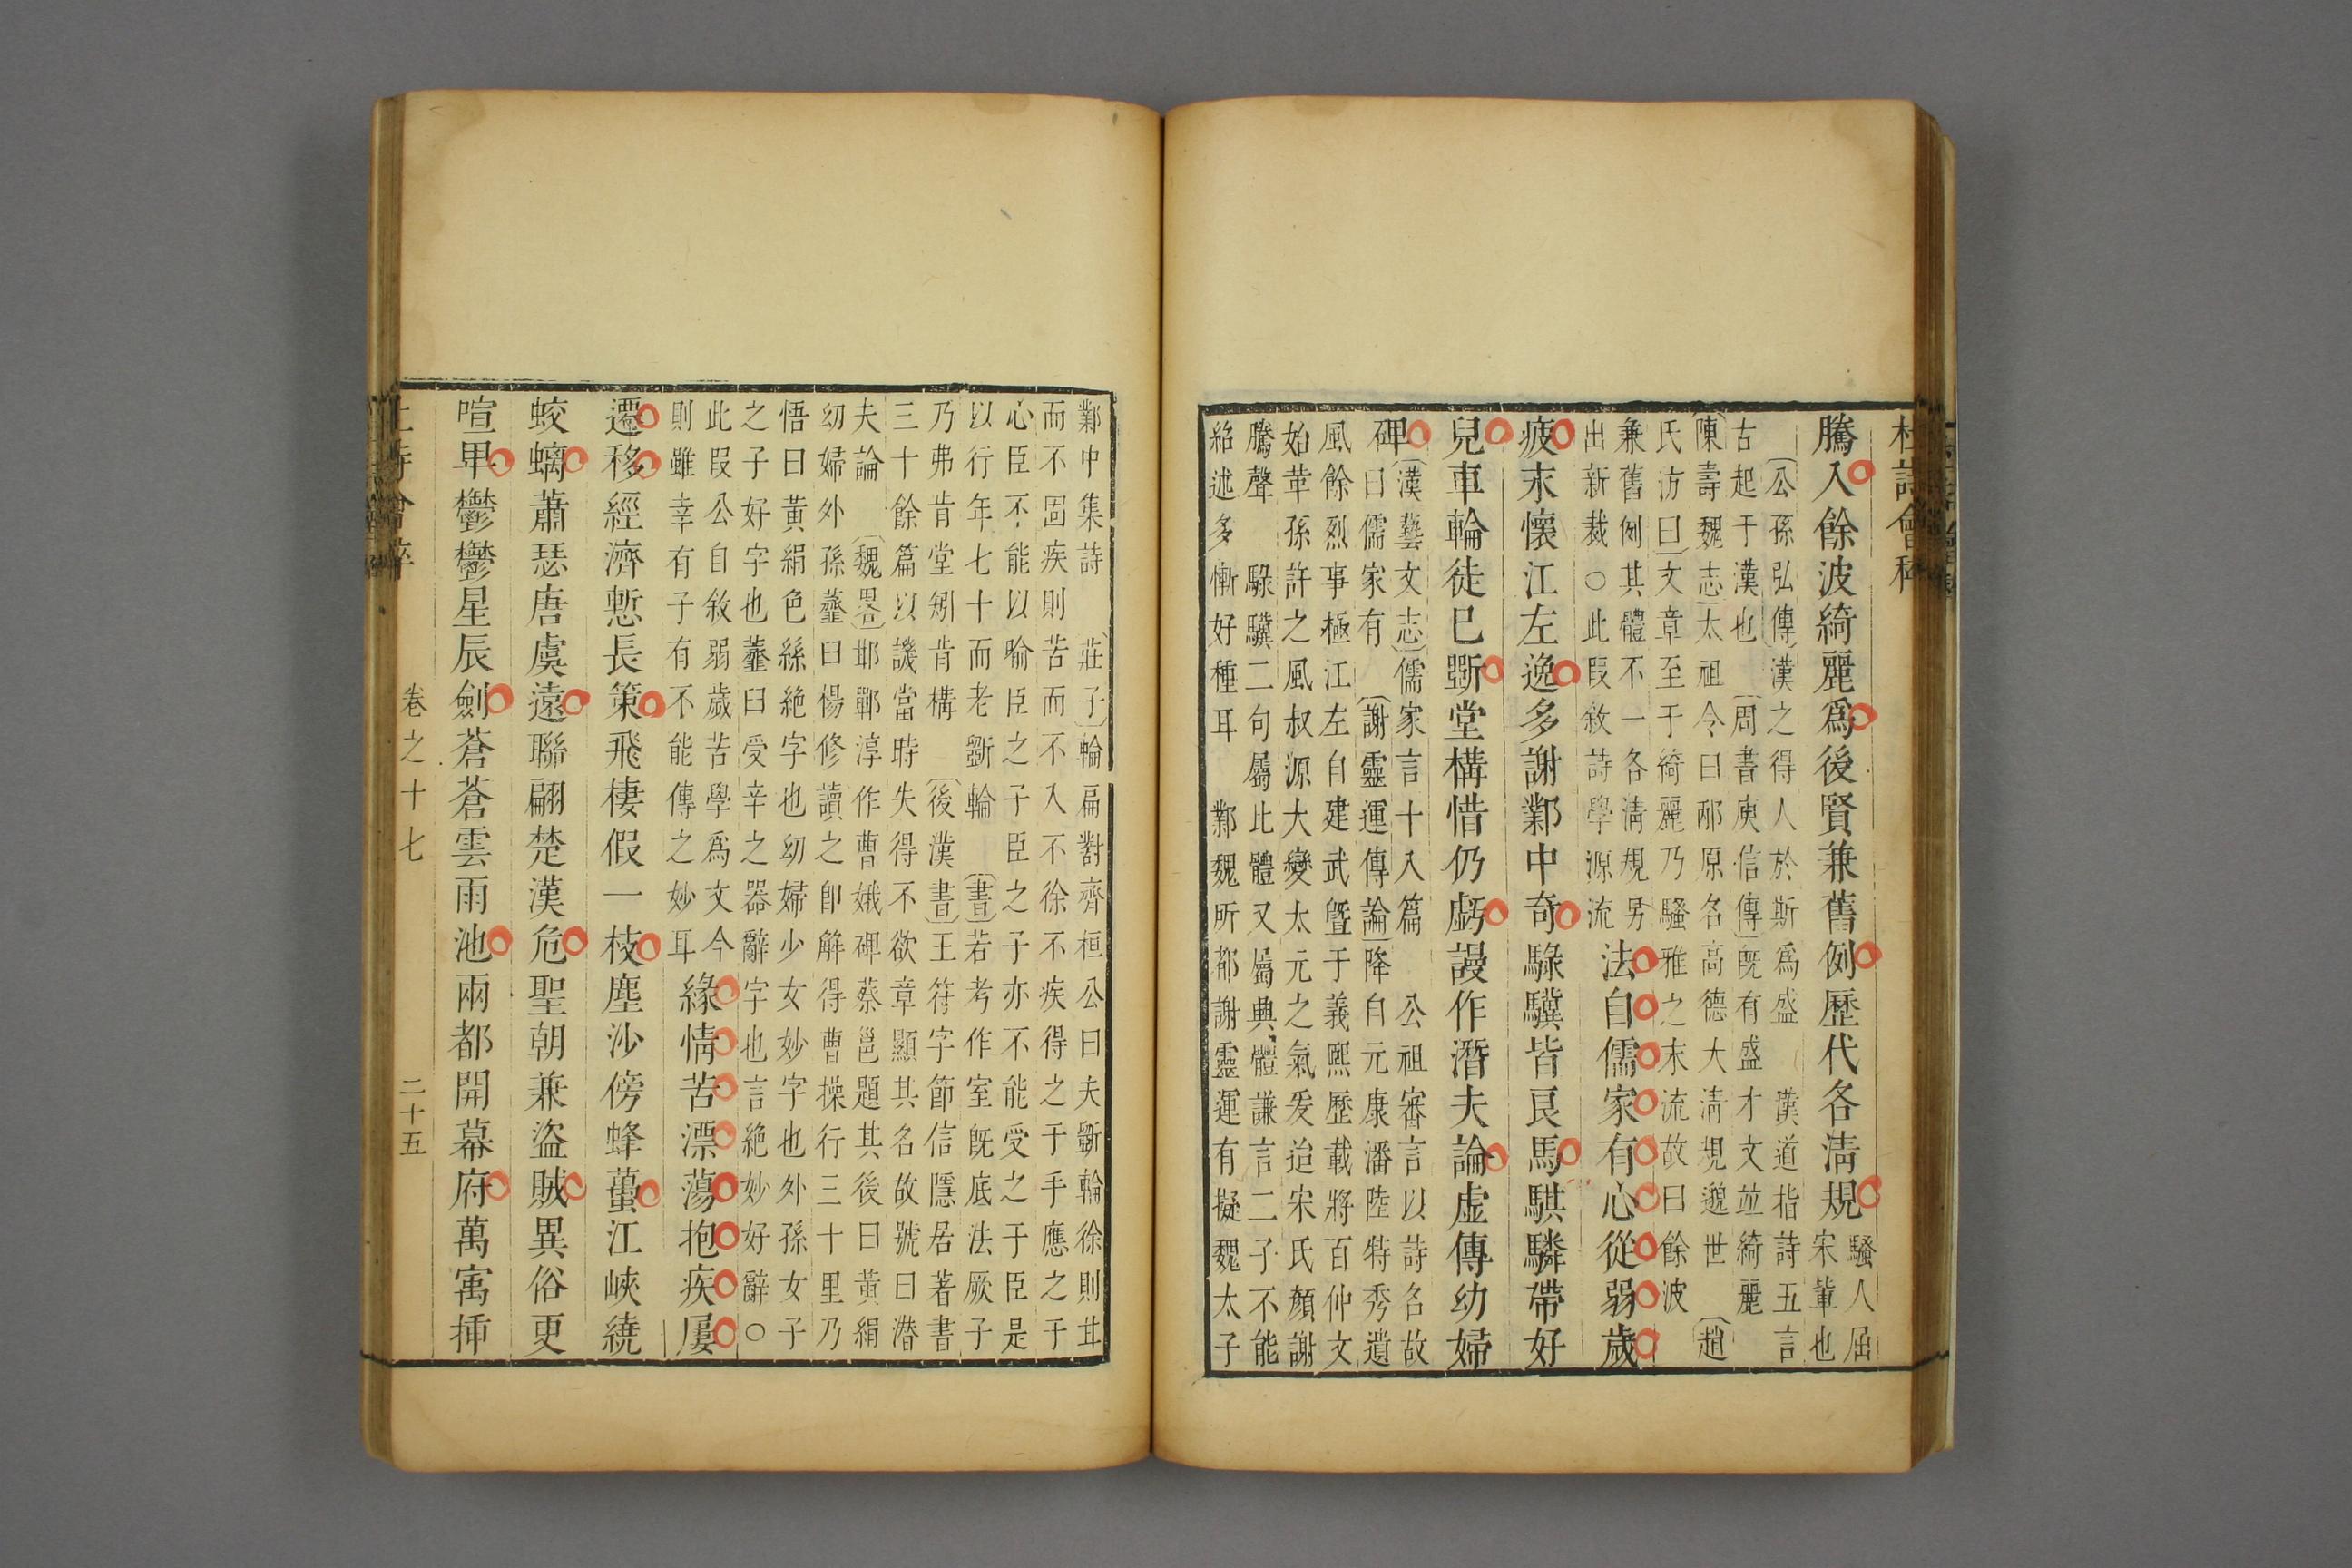 杜詩會稡
騰入餘波綺麗爲後賢兼舊例歷代各淸規騷人屈
宋輩也
〔公孫弘傳〕漢之得人於斯爲盛 漢道指詩五言
古起于漢也 〔周書庾信傳〕旣有盛才文並綺麗
〔陳壽魏志〕太祖令曰邴原名高德大淸規邈世 〔趙
氏汸曰〕文章至于綺麗乃騷雅之末流故曰餘波
兼舊例其體不一各淸規另
出新裁○此叚敘詩學源流
法自儒家有心從弱歲
疲末懷江左逸多謝鄴中奇騄驥皆良馬騏驎帶好
兒車輪徒巳斲堂構惜仍虧謾作潛夫論虛傳幼婦
碑
〔漢藝文志〕儒家言十八篇 公祖審言以詩名故
曰儒家有 〔謝靈運傳論〕降自元康潘陸特秀遺
風餘烈事極江左自建武曁于義熙歷載將百仲文
始革孫許之風叔源大變太元之氣爰迨宋氏顏謝
騰聲 騄驥二句屬此體又屬典體謙言二子不能
紹述多慚好種耳 鄴魏所都謝靈運有擬魏太子
鄴中集詩 〔莊子〕輪扁對齊桓公曰夫斲輪徐則甘
而不固疾則苦而不入不徐不疾得之于手應之于
心臣不能以喻臣之子臣之子亦不能受之于臣是
以行年七十而老斲輪 〔書〕若考作室旣底法厥子
乃弗肯堂矧肯構 〔後漢書〕王符字節信隱居著書
三十餘篇以譏當時失得不欲章顯其名故號曰潛
夫論 〔魏畧〕邯鄲淳作曹娥碑蔡邕題其後曰黃絹
幼婦外孫虀臼楊修讀之卽解得曹操行三十里乃
悟曰黃絹色絲絶字也幼婦少女妙字也外孫女子
之子好字也虀臼受辛之器辭字也言絶妙好辭○
此叚公自敘弱歲苦學爲文今
則雖幸有子有不能傳之妙耳
緣情苦漂蕩抱疾屢
遷移經濟慙長策飛棲假一枝塵沙傍蜂蠆江峽繞
蛟螭蕭瑟唐虞遠聯翩楚漢危聖朝兼盜賊異俗更
喧卑鬱鬱星辰劍蒼蒼雲雨池兩都開幕府萬寓揷
卷之十七
二十五